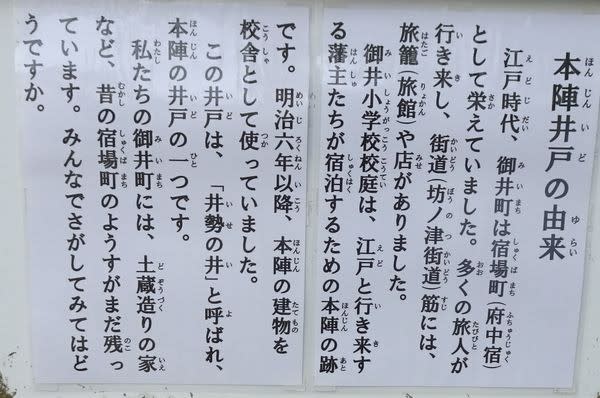 本陣井戸の由来
江戸時代、御井町は宿場町(府中宿)
として栄えていました。多くの旅人が
行き来し、街道(坊ノ津街道)筋には、
旅籠(旅館)や店がありました。
御井小学校校庭は、江戸と行き来す
る藩主たちが宿泊するための本陣の跡
です。明治六年以降、本陣の建物を
校舎として使っていました。
この井戸は、「井勢の井」と呼ばれ、
本陣の井戸の一つです。
私たちの御井町には、土蔵造りの家
など、昔の宿場町のようすがまだ残っ
ています。みんなでさがしてみてはど
うですか。